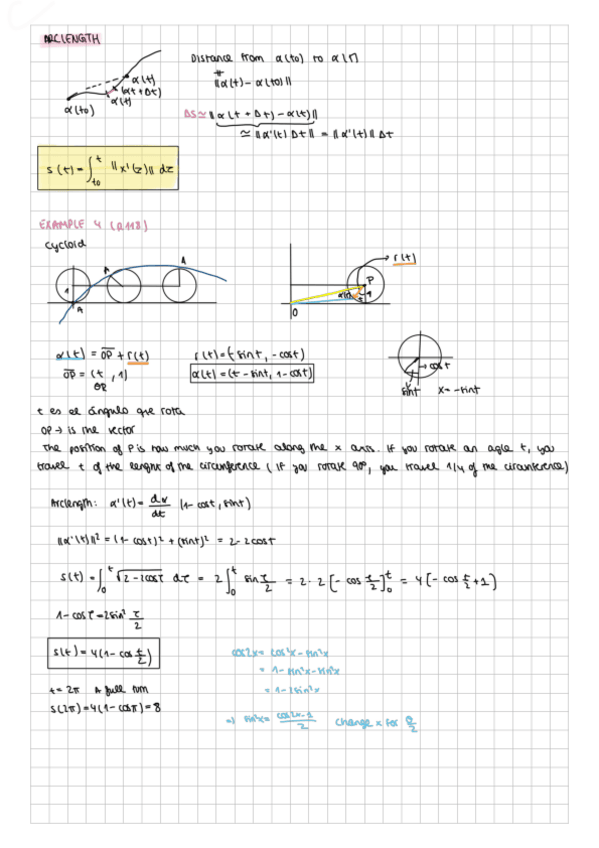 ARCLENGTH
Distance from α(to) to α(t)
‖α(t) - α(to)‖
α(t)
α(t + Δt)
α(t)
α(to)
ΔS ≃ ‖α(t + Δt) - α(t)‖
≃ ‖α'(t) Δt‖ = ‖α'(t)‖ Δt
s(t) = ∫ₜₒᵗ ‖x'(z)‖ dz
EXAMPLE 4 (p.118)
cycloid
r(t)
A
A
A
1
P
1
O
α(t) = OP + r(t)
r(t) = (-sint, -cost)
OP = (t, 1)
OP
α(t) = (t - sint, 1 - cost)
cost
sint
x = -sint
t es el ángulo que rota
OP → is the vector
The position of P is how much you rotate along the x axis. If you rotate an agle t, you
travel t of the lenght of the circunference (if you rotate 90°, you travel 1/4 of the circunference)
Arclength: α'(t) = dα/dt (1 - cost, sint)
‖α'(t)‖² = (1 - cost)² + (sint)² = 2 - 2cost
s(t) = ∫₀ᵗ √(2 - 2cosτ) dτ = 2 ∫₀ᵗ sin τ/2 = 2 · 2 [-cos τ/2]₀ᵗ = 4 (-cos t/2 + 1)
1 - cosτ = 2sin² τ/2
s(t) = 4(1 - cos t/2)
cos2x = cos²x - sin²x
= 1 - sin²x - sin²x
= 1 - 2sin²x
t = 2π A full turn
s(2π) = 4(1 - cosπ) = 8
⇒ sin²x = cos2x - 1 / 2 change x for